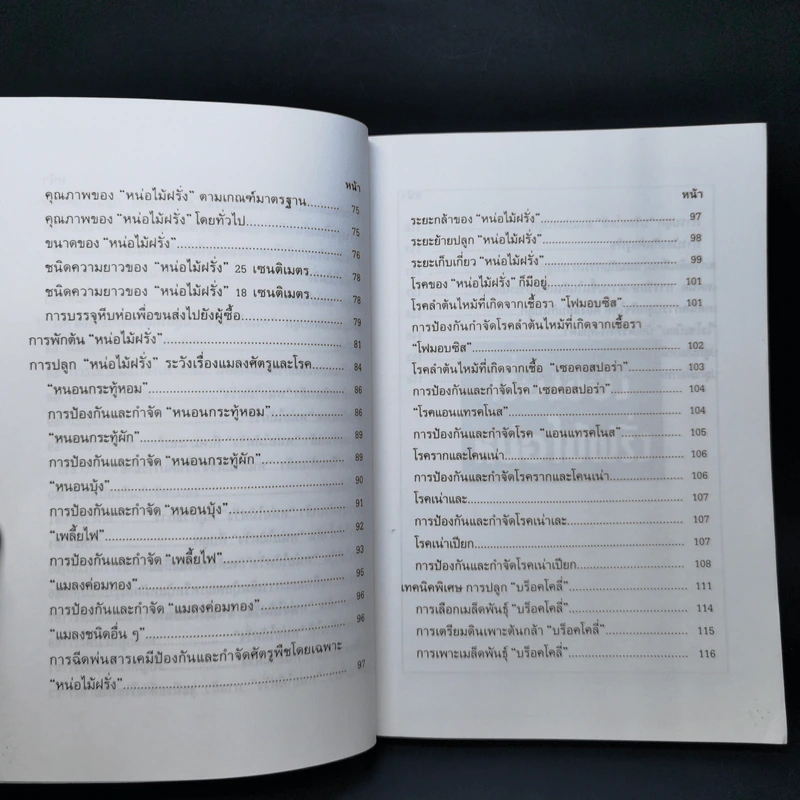 หน้า
คุณภาพของ “หน่อไม้ฝรั่ง” ตามเกณฑ์มาตรฐาน.......... 75
คุณภาพของ “หน่อไม้ฝรั่ง” โดยทั่วไป.......... 75
ขนาดของ “หน่อไม้ฝรั่ง”.......... 76
ชนิดความยาวของ “หน่อไม้ฝรั่ง” 25 เซนติเมตร.......... 78
ชนิดความยาวของ “หน่อไม้ฝรั่ง” 18 เซนติเมตร.......... 78
การบรรจุหีบห่อเพื่อขนส่งไปยังผู้ซื้อ.......... 79
การพักต้น “หน่อไม้ฝรั่ง”.......... 81
การปลูก “หน่อไม้ฝรั่ง” ระวังเรื่องแมลงศัตรูและโรค.......... 84
“หนอนกระทู้หอม”.......... 86
การป้องกันและกำจัด “หนอนกระทู้หอม”.......... 86
“หนอนกระทู้ผัก”.......... 89
การป้องกันและกำจัด “หนอนกระทู้ผัก”.......... 89
“หนอนบุ้ง”.......... 90
การป้องกันและกำจัด “หนอนบุ้ง”.......... 91
“เพลี้ยไฟ”.......... 92
การป้องกันและกำจัด “เพลี้ยไฟ”.......... 93
“แมลงค่อมทอง”.......... 95
การป้องกันและกำจัด “แมลงค่อมทอง”.......... 96
“แมลงชนิดอื่น ๆ”.......... 96
การฉีดพ่นสารเคมีป้องกันและกำจัดศัตรูพืชโดยเฉพาะ
“หน่อไม้ฝรั่ง”.......... 97
หน้า
ระยะกล้าของ “หน่อไม้ฝรั่ง”.......... 97
ระยะย้ายปลูก “หน่อไม้ฝรั่ง”.......... 98
ระยะเก็บเกี่ยว “หน่อไม้ฝรั่ง”.......... 99
โรคของ “หน่อไม้ฝรั่ง” ก็มีอยู่.......... 101
โรคลำต้นไหม้ที่เกิดจากเชื้อรา “โฟมอบซิส”.......... 101
การป้องกันกำจัดโรคลำต้นไหม้ที่เกิดจากเชื้อรา
“โฟมอบซิส”.......... 102
โรคลำต้นไหม้ที่เกิดจากเชื้อ “เซอคอสปอร่า”.......... 103
การป้องกันและกำจัดโรค “เซอคอสปอร่า”.......... 104
“โรคแอนแทรคโนส”.......... 104
การป้องกันและกำจัดโรค “แอนแทรคโนส”.......... 105
โรครากและโคนเน่า.......... 106
การป้องกันและกำจัดโรครากและโคนเน่า.......... 106
โรคเน่าและ.......... 107
การป้องกันและกำจัดโรคเน่าเละ.......... 107
โรคเน่าเปียก.......... 107
การป้องกันและกำจัดโรคเน่าเปียก.......... 108
เทคนิคพิเศษ การปลูก “บร็อคโคลี่”.......... 111
การเลือกเมล็ดพันธุ์ “บร็อคโคลี่”.......... 114
การเตรียมดินเพาะต้นกล้า “บร็อคโคลี่”.......... 115
การเพาะเมล็ดพันธุ์ “บร็อคโคลี่”.......... 116